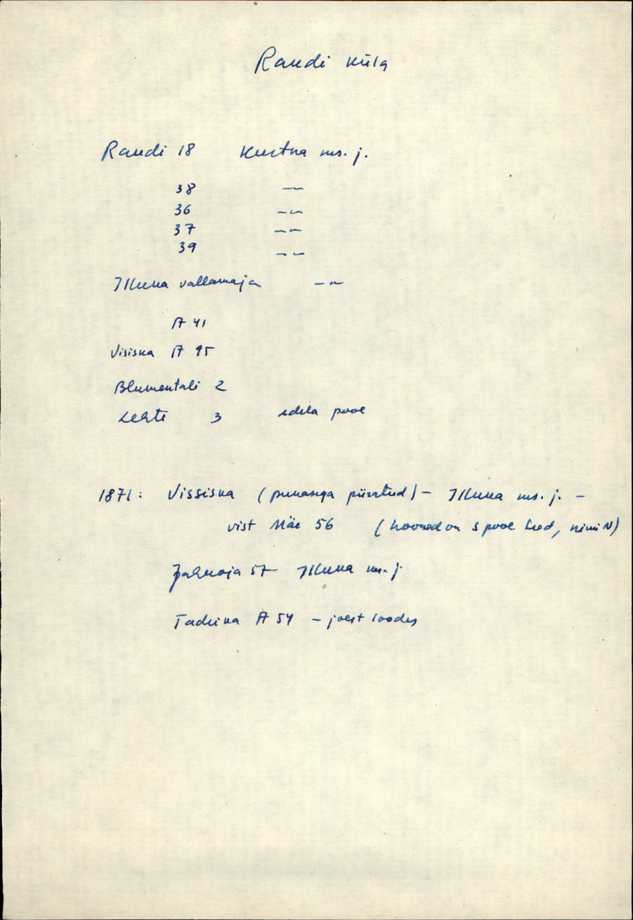 Raudi küla
Raudi 18 Kurtna ms. j.
38 —〃—
36 —〃—
37 —〃—
39 —〃—
Illuka vallamaja —〃—
A 41
Visiska A 95
Blumentali 2
Lehte 3 edela pool
1871: Vissiska (punasega piiratud) – Illuka ms. j. –
vist Mäe 56 (hooned on S pool teed, nimi N)
57 Illuka ms. j
Tadrika A 54 – joest loodes